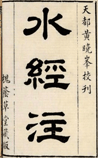 天都黃曉峯校刊
水經注
槐蔭草堂藏板